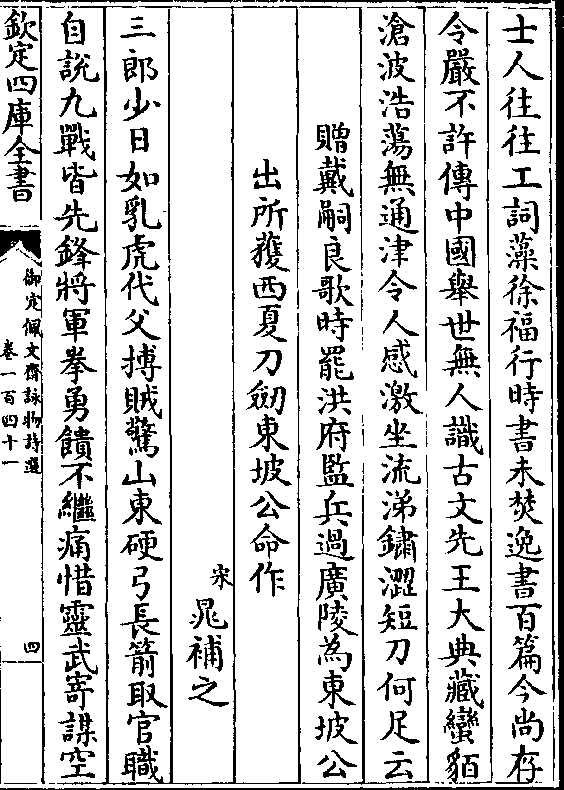 士人往往工詞藻徐福行時書未焚逸書百篇今尚存
令嚴不許傳中國舉世無人識古文先王大典藏蠻貊
滄波浩蕩無通津令人感激坐流涕鏽澀短刀何足云
贈戴嗣良歌時罷洪府監兵過廣陵為東坡公
出所獲西夏刀劒東坡公命作
宋 晁補之
三郎少日如乳虎代父搏賊驚山東硬弓長箭取官職
自說九戰皆先鋒將軍拳勇饋不繼痛惜靈武寄謀空
欽定四庫全書
御定佩文齋詠物詩選
卷一百四十一
四